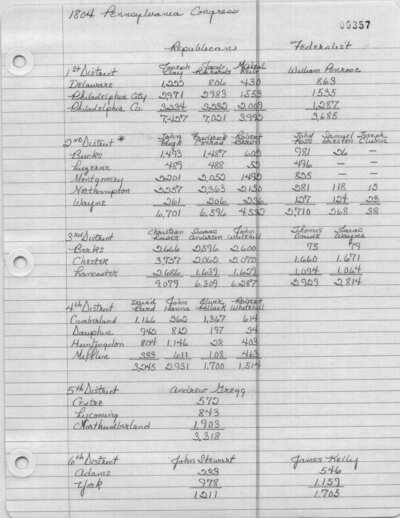 1804 Pennsylvania Congress
00357
Republican Federalist
1st District Joseph Clay Jacob Richards Michael Leib William Penrose
Delaware 1,222 806 430 863
Philadelphia City 2,971 2,983 1,553 1,535
Philadelphia Co. 3,234 3,232 2,009 1,287
7,427 7,021 3,992 3,685
2nd District * John Pugh Frederick Conrad Robert Brown John Ross Samuel Preston Joseph Clunn
Bucks 1,493 1,487 622 981 26 -
Luzerne 489 488 52 496 - -
Montgomery 2,201 2,052 1,492 825 - -
Northampton 2,257 2,363 2,150 281 118 15
Wayne 261 206 236 127 124 23
6,701 6,596 4,552 2,710 268 38
3rd District Christian Lower Isaac Anderson John Whitehill Thomas Boude Isaac Wayne
Berks 2,666 2,596 2,600 75 79
Chester 3,727 2,070 1,660 1,671
Lancaster 2,686 1,639 1,094 1,064
9,079 6,309 6,287 2,829 2,814
4th District David Bard John Hanna Oliver Pollock Robert Whitehill
Cumberland 1,166 362 1,367 614
Dauphin 942 812 197 34
Huntingdon 804 1,146 28 403
Mifflin 333 611 108 463
3,245 2,931 1,700 1,514
5th District Andrew Gregg
Centre 572
Lycoming 843
Northumberland 1,903
3,318
6th District John Stewart James Kelly
Adams 233 546
York 978 1,159
1,211 1,705